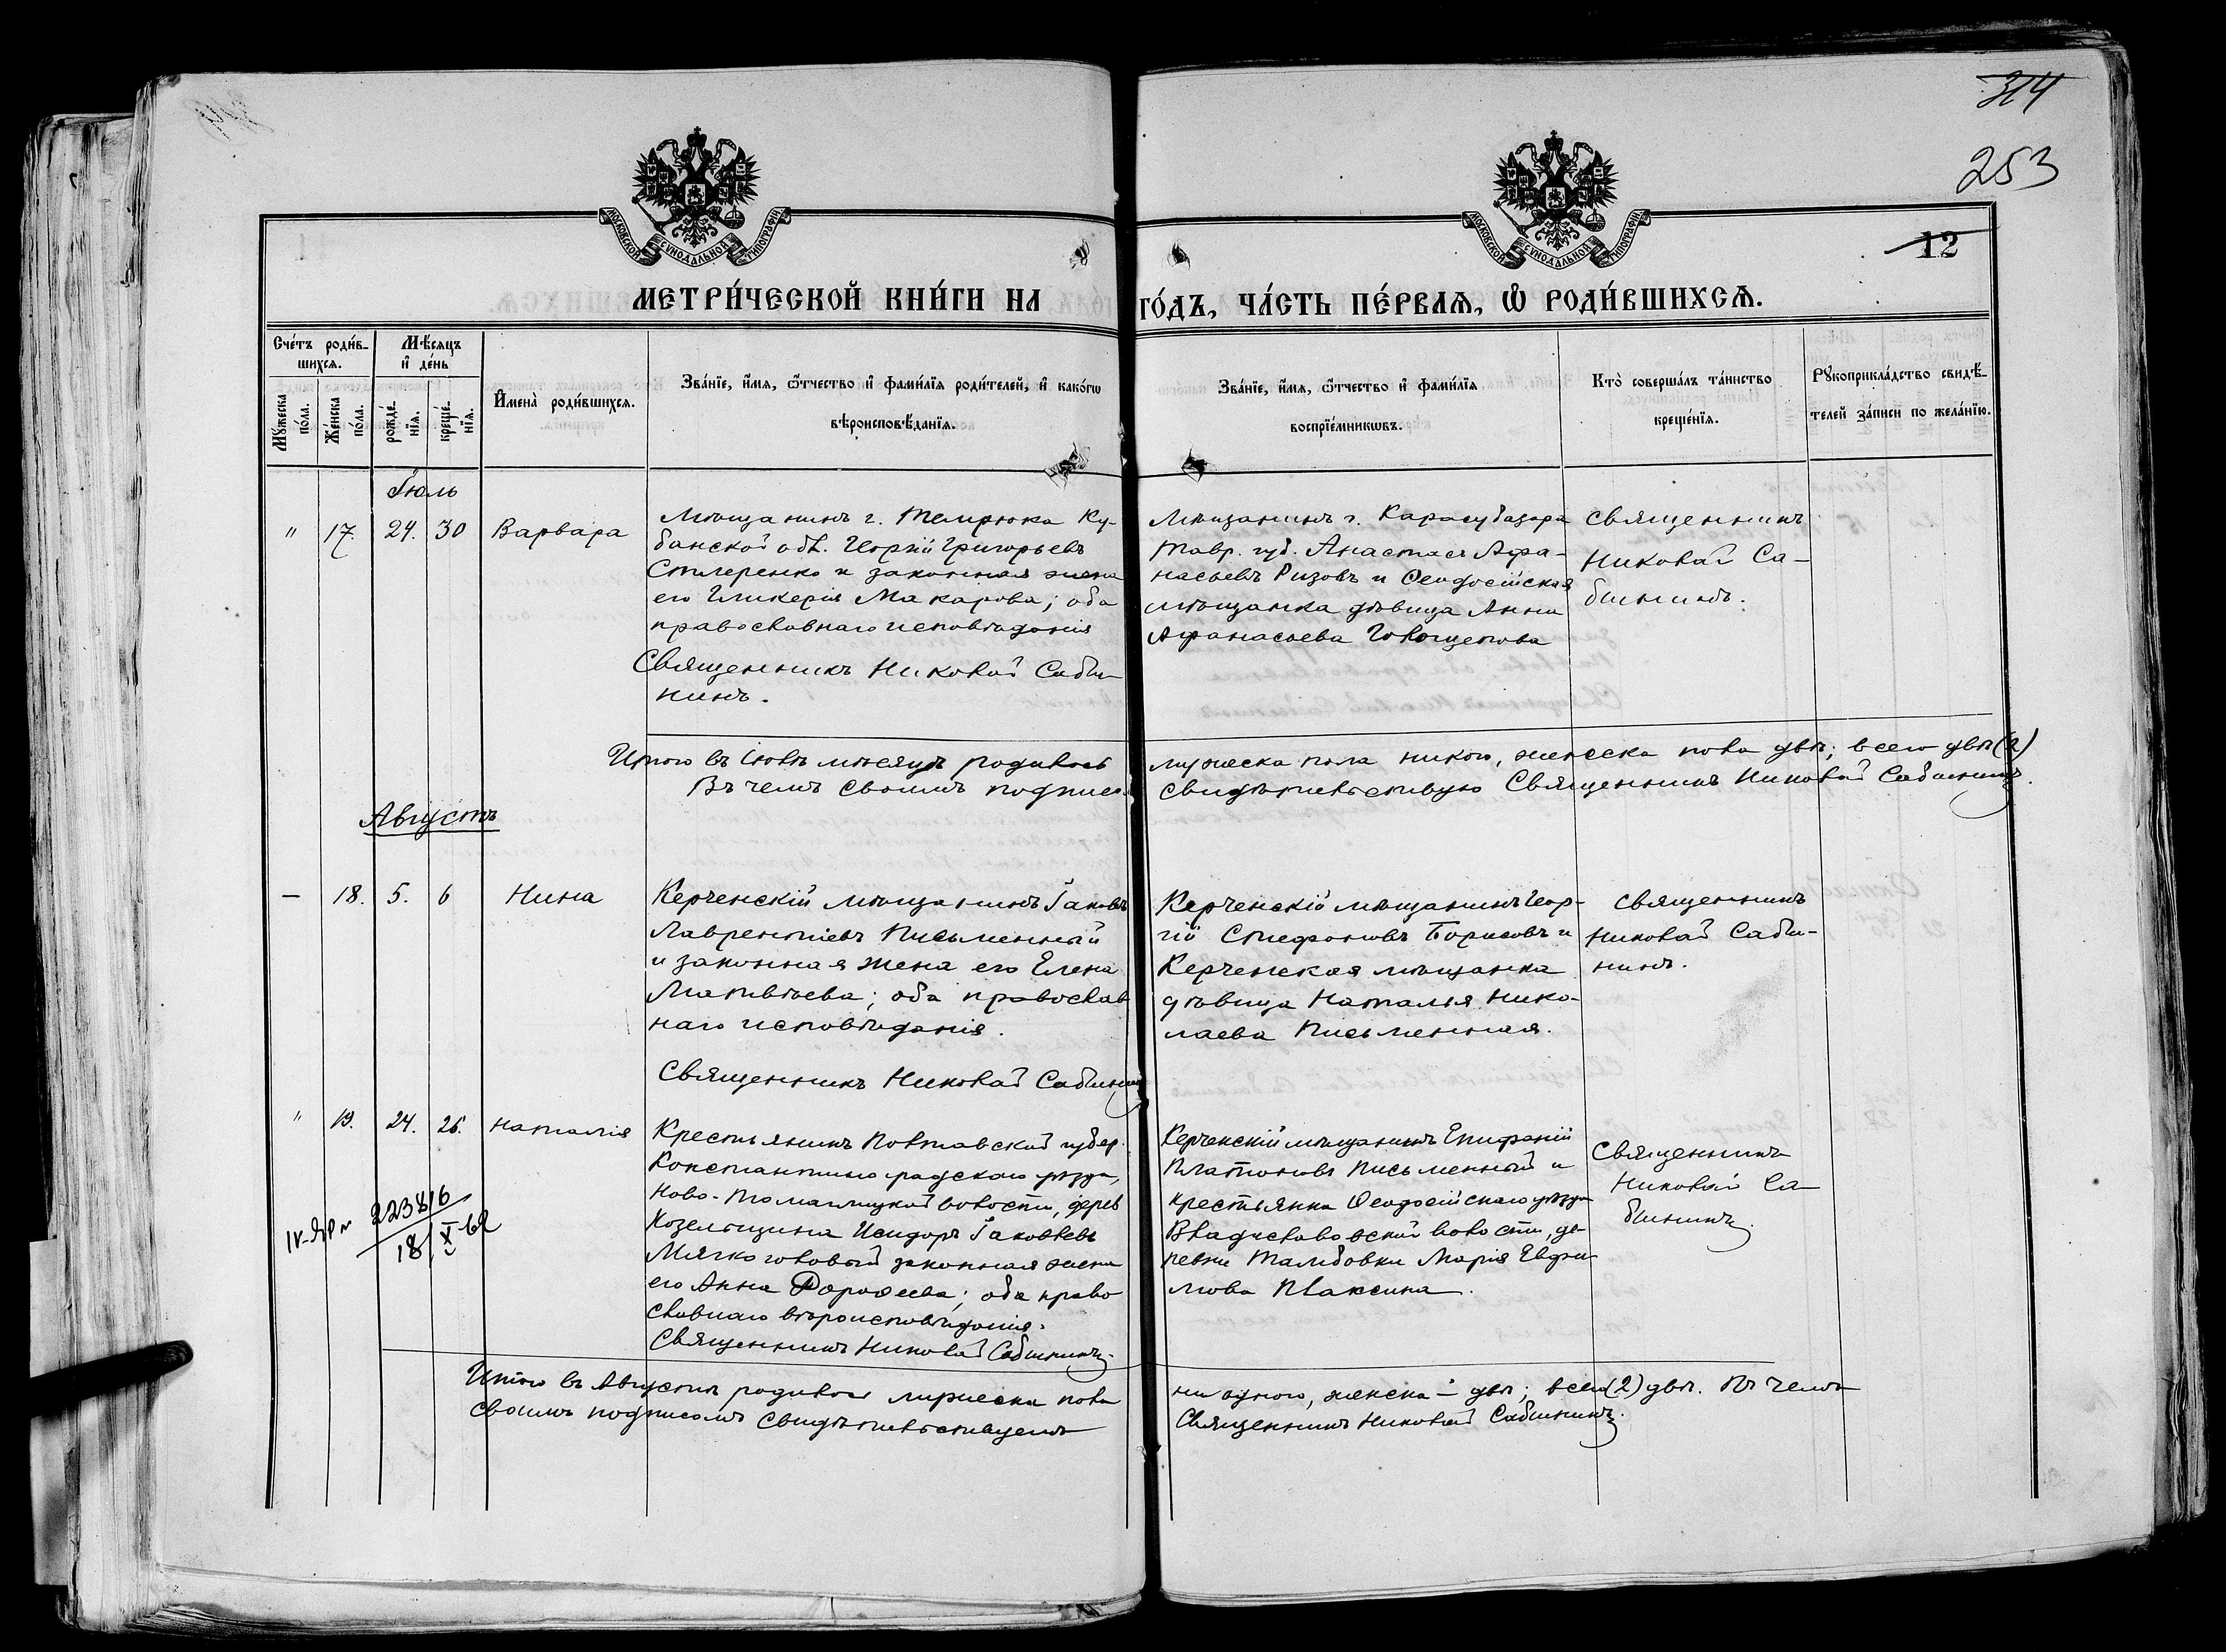 314
253
12
МОСКОВСКОЙ СѴНОДАЛЬНОЙ ТИПОГРАФІИ
МОСКОВСКОЙ СѴНОДАЛЬНОЙ ТИПОГРАФІИ
МЕТРИ́ЧЕСКОЙ КНИ́ГИ НА ГО́ДЪ, ЧА́СТЬ ПЕ́РВАѦ, Ѡ҆ РОДИ́ВШИХСѦ.
Сче́тъ роди́в-
шихсѧ.
Мѣ́сѧцъ
и҆ де́нь
Мꙋжеска
по́ла.
Же́нска
по́ла.
рожде́-
нїѧ.
креще́-
нїѧ.
И҆мена̀ роди́вшихсѧ.
Зва́нїе, и҆́мѧ, ѻ҆́тчество и҆ фами́лїѧ роди́телей, и҆ како́гѡ
вѣроисповѣ́данїѧ.
Зва́нїе, и҆́мѧ, ѻ҆́тчество и҆ фами́лїѧ
воспрїе́мникѡвъ.
Кто̀ соверша́лъ та́инство
креще́нїѧ.
Рꙋкоприкла́дство свидѣ́-
телей за́писи по жела́нїю.
Іюль
" 17. 24. 30 Варвара
Мѣщанинъ г. Темрюка Ку-
банской обл. Георгій Григорьевъ
и законная жена
его Гликерія Макарова; оба
православнаго исповѣданія
Священникъ Николай Саби-
нинъ.
Мѣщанинъ г. Карасубазара
Тавр. губ. Анастасъ Афа-
насьевъ Ризовъ и Ѳеодосійская
мѣщанка дѣвица Анна
Афанасьева
Священникъ
Николай Са-
бининъ.
Итого въ Іюлѣ мѣсяцѣ родилось мужеска пола никого, женска пола двѣ; всего двѣ (2)
Въ чемъ своимъ подписомъ свидѣтельствую Священникъ Николай Сабининъ.
Августъ
— 18. 5. 6 Нина
Керченскій мѣщанинъ Іаковъ
Лаврентіевъ Письменный
и законная жена его Елена
Матвѣева; оба православ
наго исповѣданія.
Священникъ Николай Сабининъ
Керченскій мѣщанинъ Геор-
гій Стефановъ Борисовъ и
Керченская мѣщанка
дѣвица Наталья Нико-
лаева Письменная.
Священникъ
Николай Саби-
нинъ.
" 19. 24. 26. Наталія
Крестьянинъ Полтавской губер.
Константиноградскаго уѣзда,
волости, дерев
Козельщина Исидоръ Іаковлевъ
законная жена
его Анна Дороѳеева; оба право
славнаго вѣроисповѣданія.
Священникъ Николай Сабининъ.
Керченскій мѣщанинъ Епифаній
Платоновъ Письменный и
крестьянка Ѳеодосійскаго уѣзда
Владиславовской волости, де-
ревни Марія Евфи-
мова Плаксина.
Священникъ
Николай Са
бининъ.
223816
18/X-62
Итого въ Августѣ родилось мужеска пола ни одного, женска – двѣ; всего (2) двѣ. Въ чемъ
своимъ подписомъ свидѣтельствуемъ Священникъ Николай Сабининъ.